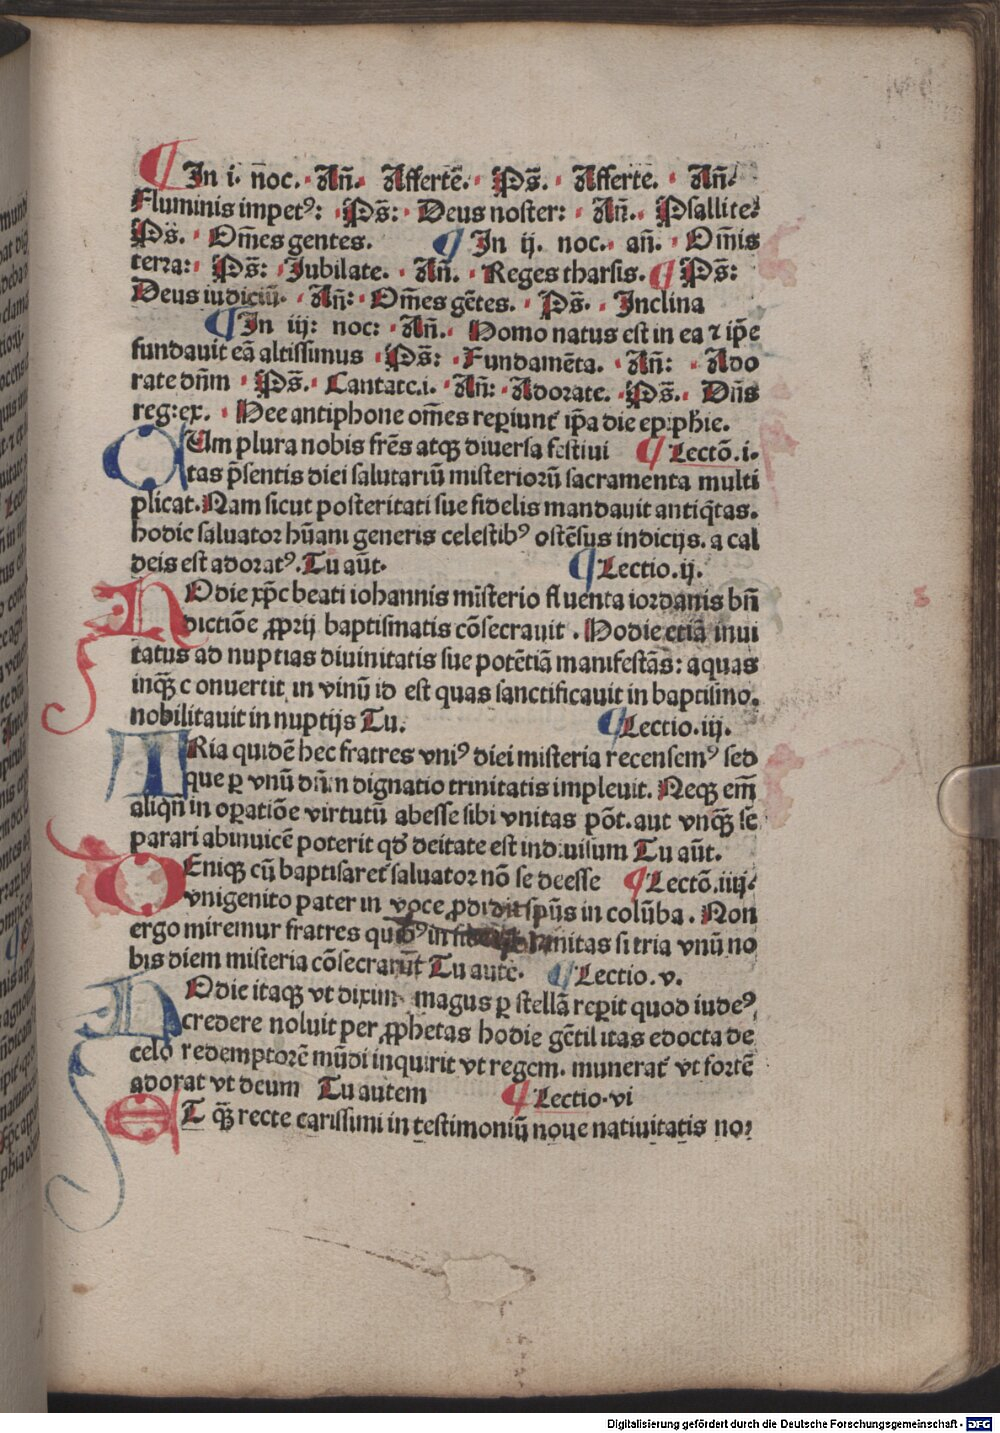 ¶ In i. noc̄. Añ. Affertē. Ps̄. Afferte. Añ.
Fluminis impetꝰ: Ps̄: Deus noster: Añ. Psallite:
Ps̄. Om̄es gentes. ¶ In ij. noc. añ. Om̄is
terra: Ps̄: Jubilate. Añ. Reges tharsis. ¶ Ps̄:
Deus iudiciū. Añ: Om̄es gētes. Ps̄. Inclina
¶ In iij: noc: Añ. Homo natus est in ea ⁊ ip̄e
fundauit eā altissimus Ps̄: Fundamēta. Añ: Ado
rate dn̄m Ps̄. Cantate.i. Añ: Adorate. Ps̄. Dn̄s
reg:ex. Hee antiphone om̄es reperiunt᷑ ip̄a die ep:phie.
CUm plura nobis fr̄es atqꝫ diuersa festiui ¶ Lectō.i.
tas p̄sentis diei salutariū misteriorū sacramenta multi
plicat. Nam sicut posteritati sue fidelis mandauit antiq̄tas.
hodie saluator hūani generis celestibꝰ ostēsus indicijs. a cal
deis est adoratꝰ. Tu aūt. ¶ Lectio.ij.
HOdie xp̄c beati iohannis misterio fluenta iordanis bn̄
dictiōe ꝓprij baptismatis cōsecrauit. Hodie etiā inui
tatus ad nuptias diuinitatis sue potētiā manifestās: aquas
inqꝫ conuertit in vinū id est quas sanctificauit in baptismo.
nobilitauit in nuptijs Tu. ¶ Lectio.iij.
TRia quidē hec fratres vniꝰ diei misteria recensemꝰ sed
que ꝑ vnū dn̄m dignatio trinitatis impleuit. Neqꝫ em̄
aliqn̄ in oꝑatiōe virtutū abesse sibi vnitas pōt. aut vnqꝫ se
parari abinuicē poterit qd̄ deitate est indiuisum Tu aūt.
DEniqꝫ cū baptisaret᷑ saluator nō se deesse ¶ Lectō.iiij.
vnigenito pater in voce ꝓdidit spūs in colūba. Non
ergo miremur fratres nitas si tria vnū no
bis diem misteria cōsecrarūt Tu aute. ¶ Lectio.v.
HOdie itaqꝫ vt dixim magus ꝑ stellā reꝑit quod iudeꝰ
credere noluit per ꝓphetas hodie gētilitas edocta de
celo redemptorē mūdi inquirit vt regem. munerat᷑ vt fortē
adorat vt deum Tu autem ¶ Lectio.vi
ET qꝫ recte carissimi in testimoniū noue natiuitatis nor
Digitalisierung gefördert durch die Deutsche Forschungsgemeinschaft - DFG